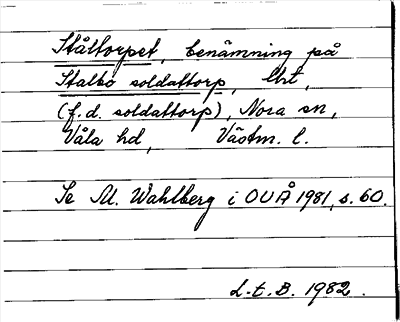 Ståltorpet, benämning på
Stalbo soldattorp, lht,
(f.d. soldattorp), Nora sn,
Våla hd, Västm. l.
Se M. Wahlberg i OUÅ 1981, s. 60.
L.t.B. 1982.